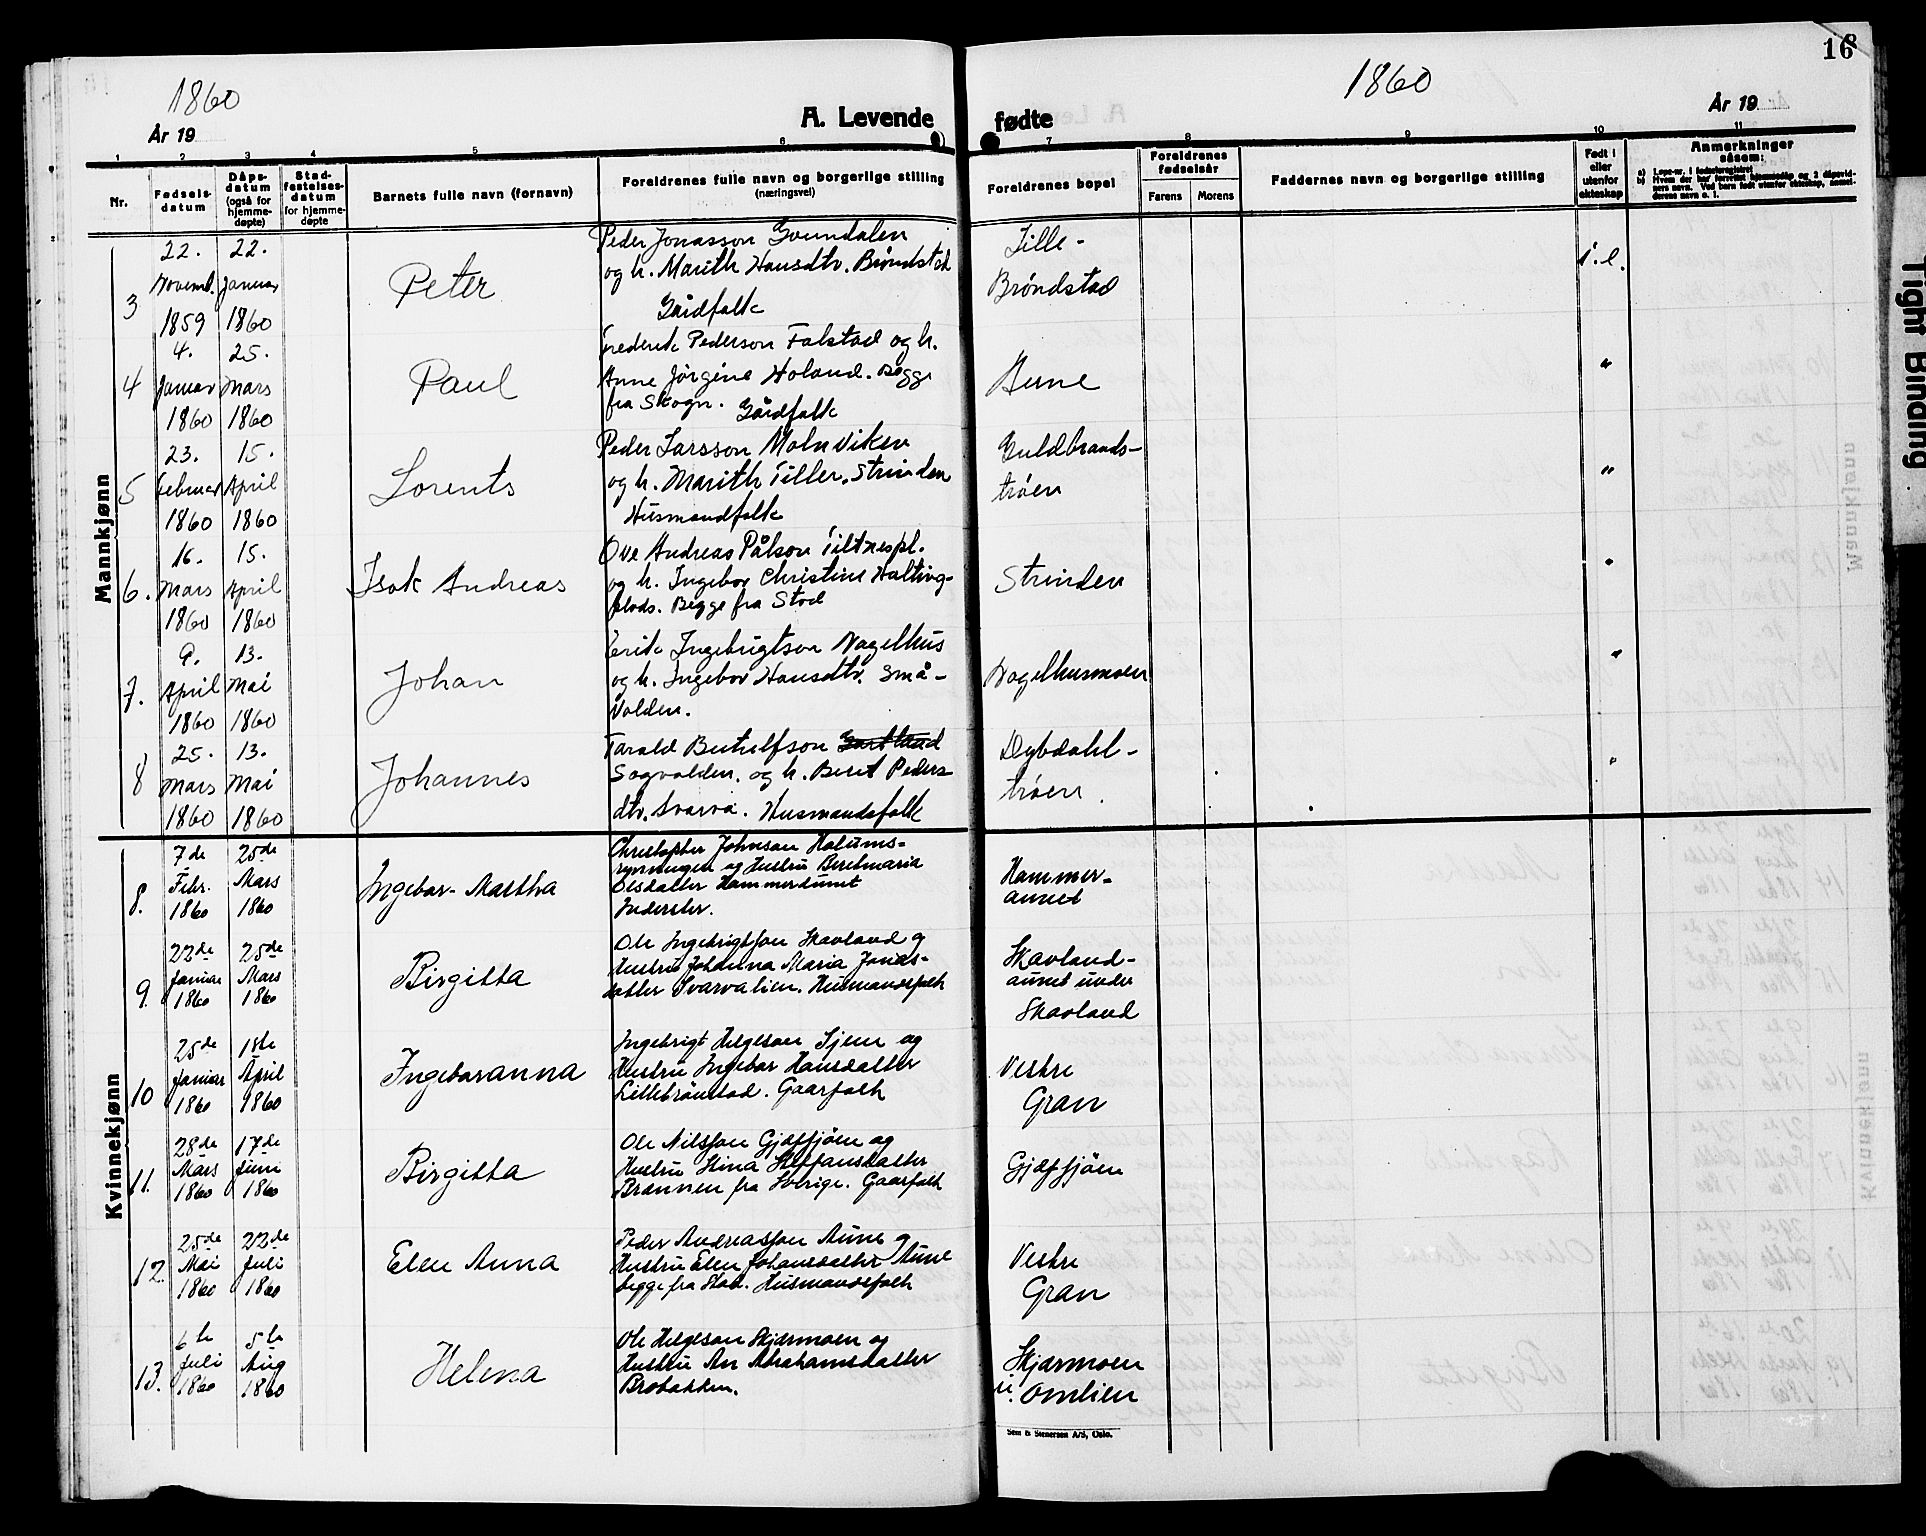 16
1860
1860
År 19
A. Levende
fødte
År 19
1 2 3 4 5 6
7 8 9 10 11
Nr.
Fødsels-
datum
Dåps-
datum
(også for
hjemme-
døpte)
Stad-
festelses-
datum
for hjemme-
døpte
Barnets fulle navn (fornavn)
Foreldrenes fulle navn og borgerlige stilling
(næringsvei)
Foreldrenes bopel
Foreldrenes
fødselsår
Farens
Morens
Faddernes navn og borgerlige stilling
Født i
eller
utenfor
ekteskap
Anmerkninger
såsom:
Mannkjønn
3
22.
Novemb.
1859
22.
Januar
1860
Peter
Peder Jonasson Grundalen
og h. Marith Hansdtr. Brøndstad
Gårdfolk
Lille-
Brøndstad
i. e.
4
4.
Januar
1860
25.
Mars
1860
Paul
Frederik Pederson Falstad og h.
Anne Jørgine Holand. Begge
fra Skogn. Gårdfolk
Aune
"
5
23.
Februar
1860
15.
April
1860
Lorents
Peder Larsson Molnviken
og h. Marith Tiller, Strinden
Husmandfolk
Guldbrands-
trøen
"
6.
16.
Mars
1860
15.
April
1860
Isak Andreas
Ove Andreas Pålson Tiltnespl.
og h. Ingebor Christine Halting-
plads. Begge fra Stod
Strinden
"
7.
9.
April
1860
13.
Mai
1860
Johan
Erik Ingebrigtson Nagelhus
og h. Ingebor Hansdtr. Små-
Volden.
Nagelhusmoen
"
8
25.
Mars
1860
13.
Mai
1860
Johannes
Tarald Butulfson Gartland
Sagvolden. og h. Beret Peders
dtr. Svarva. Husmandsfolk
Dybdahl-
trøen.
"
Kvinnekjønn
8.
7de
Febr.
1860
25de
Mars
1860
Ingebor-Martha
Christopher Johnsen Halums-
rynningen og Hustru Beretmaria
Olsdatter Hammeraunet
Hammer-
aunet
9.
22de
Januar
1860
25de
Mars
1860
Birgitta
Ole Ingebrigtson Skavland og
Hustru Johanna Maria Jonas-
datter Svarvalien. Husmandsfolk
Skavland-
aunet under
Skavland
10
25de
Januar
1860
18te
April
1860
Ingeboranna
Ingebrigt Helgesen Sjem og
Hustru Ingebor Hansdatter
Lillebrønstad. Gaarfolk
Vestre
Gran
11.
28de
Mars
1860
17de
Juni
1860
Birgitta
Ole Nilsson Gjæfsjøen og
Hustru Stina Steffansdatter
Brannen fra Sverige. Gaarfolk
Gjæfsjøen
12.
25de
Mai
1860
22de
Juli
1860
Elen Anna
Peder Andreasson Aune og
Hustru Elen Johansdatter Aune
begge fra Stod. Husmandsfolk
Vestre
Gran
13.
6te
Juli
1860
5te
Aug
1860
Helena
Ole Helgesen Skjærmoen og
Hustru An Abrahamsdatter
Brobakken.
Skjærmoen
u. Omlien
Sem & Stenersen A/S, Oslo.
Tight Binding